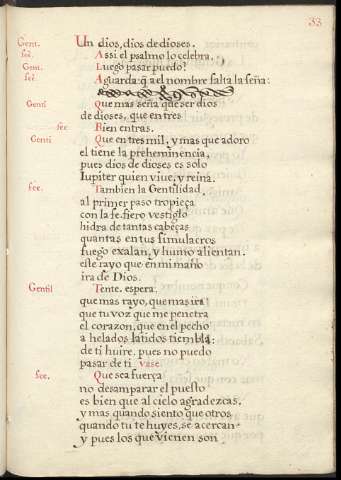 33
Gent. Un dios, dios de dioses.
fee. Assi el psalmo lo celebra.
Gen. Luego pasar puedo?
fee. Aguarda: q̃ a el nombre falta la seña:
Genti Que mas seña que ser dios
de dioses, que en tres
fee. Bien entras.
Genti Que en tres mil, y mas que adoro
el tiene la prehemĩnencia,
pues dios de dioses es solo
Iupiter quien viue, y reina.
fee. Tambien la Gentilidad.
al primer paso tropieça
con la fe. fiero vestiglo
hidra de tantas cabeças
quantas en tus simulacros
fuego exalan, y humo alientan.
este rayo que en mi mano
ira de Dios.
Gentil Tente. espera,
que mas rayo, que mas ira
que tu voz que me penetra
el corazon, que en el pecho
a helados latidos tiembla:
de ti huire. pues no puedo
pasar de ti vase.
fee. Que sea fuerça
no desamparar el puesto
es bien que al cielo agradezcas.
y mas quando siento que otros
quando tu te huyes, se acercan
y pues los que vienen son